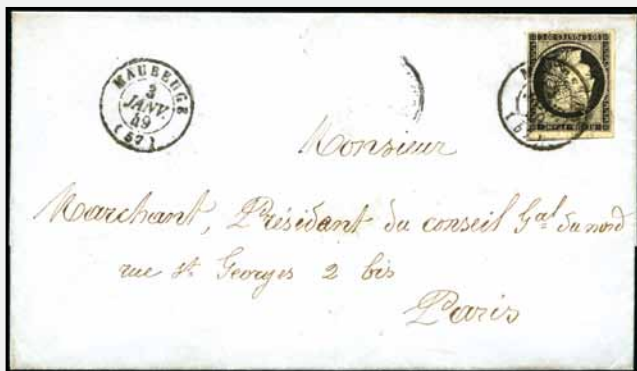 MAUBEUGE
3
JANV.
49
(57)
Monsieur
Marchant, Président du conseil Gal du nord
rue St. Georges 2 bis
Paris